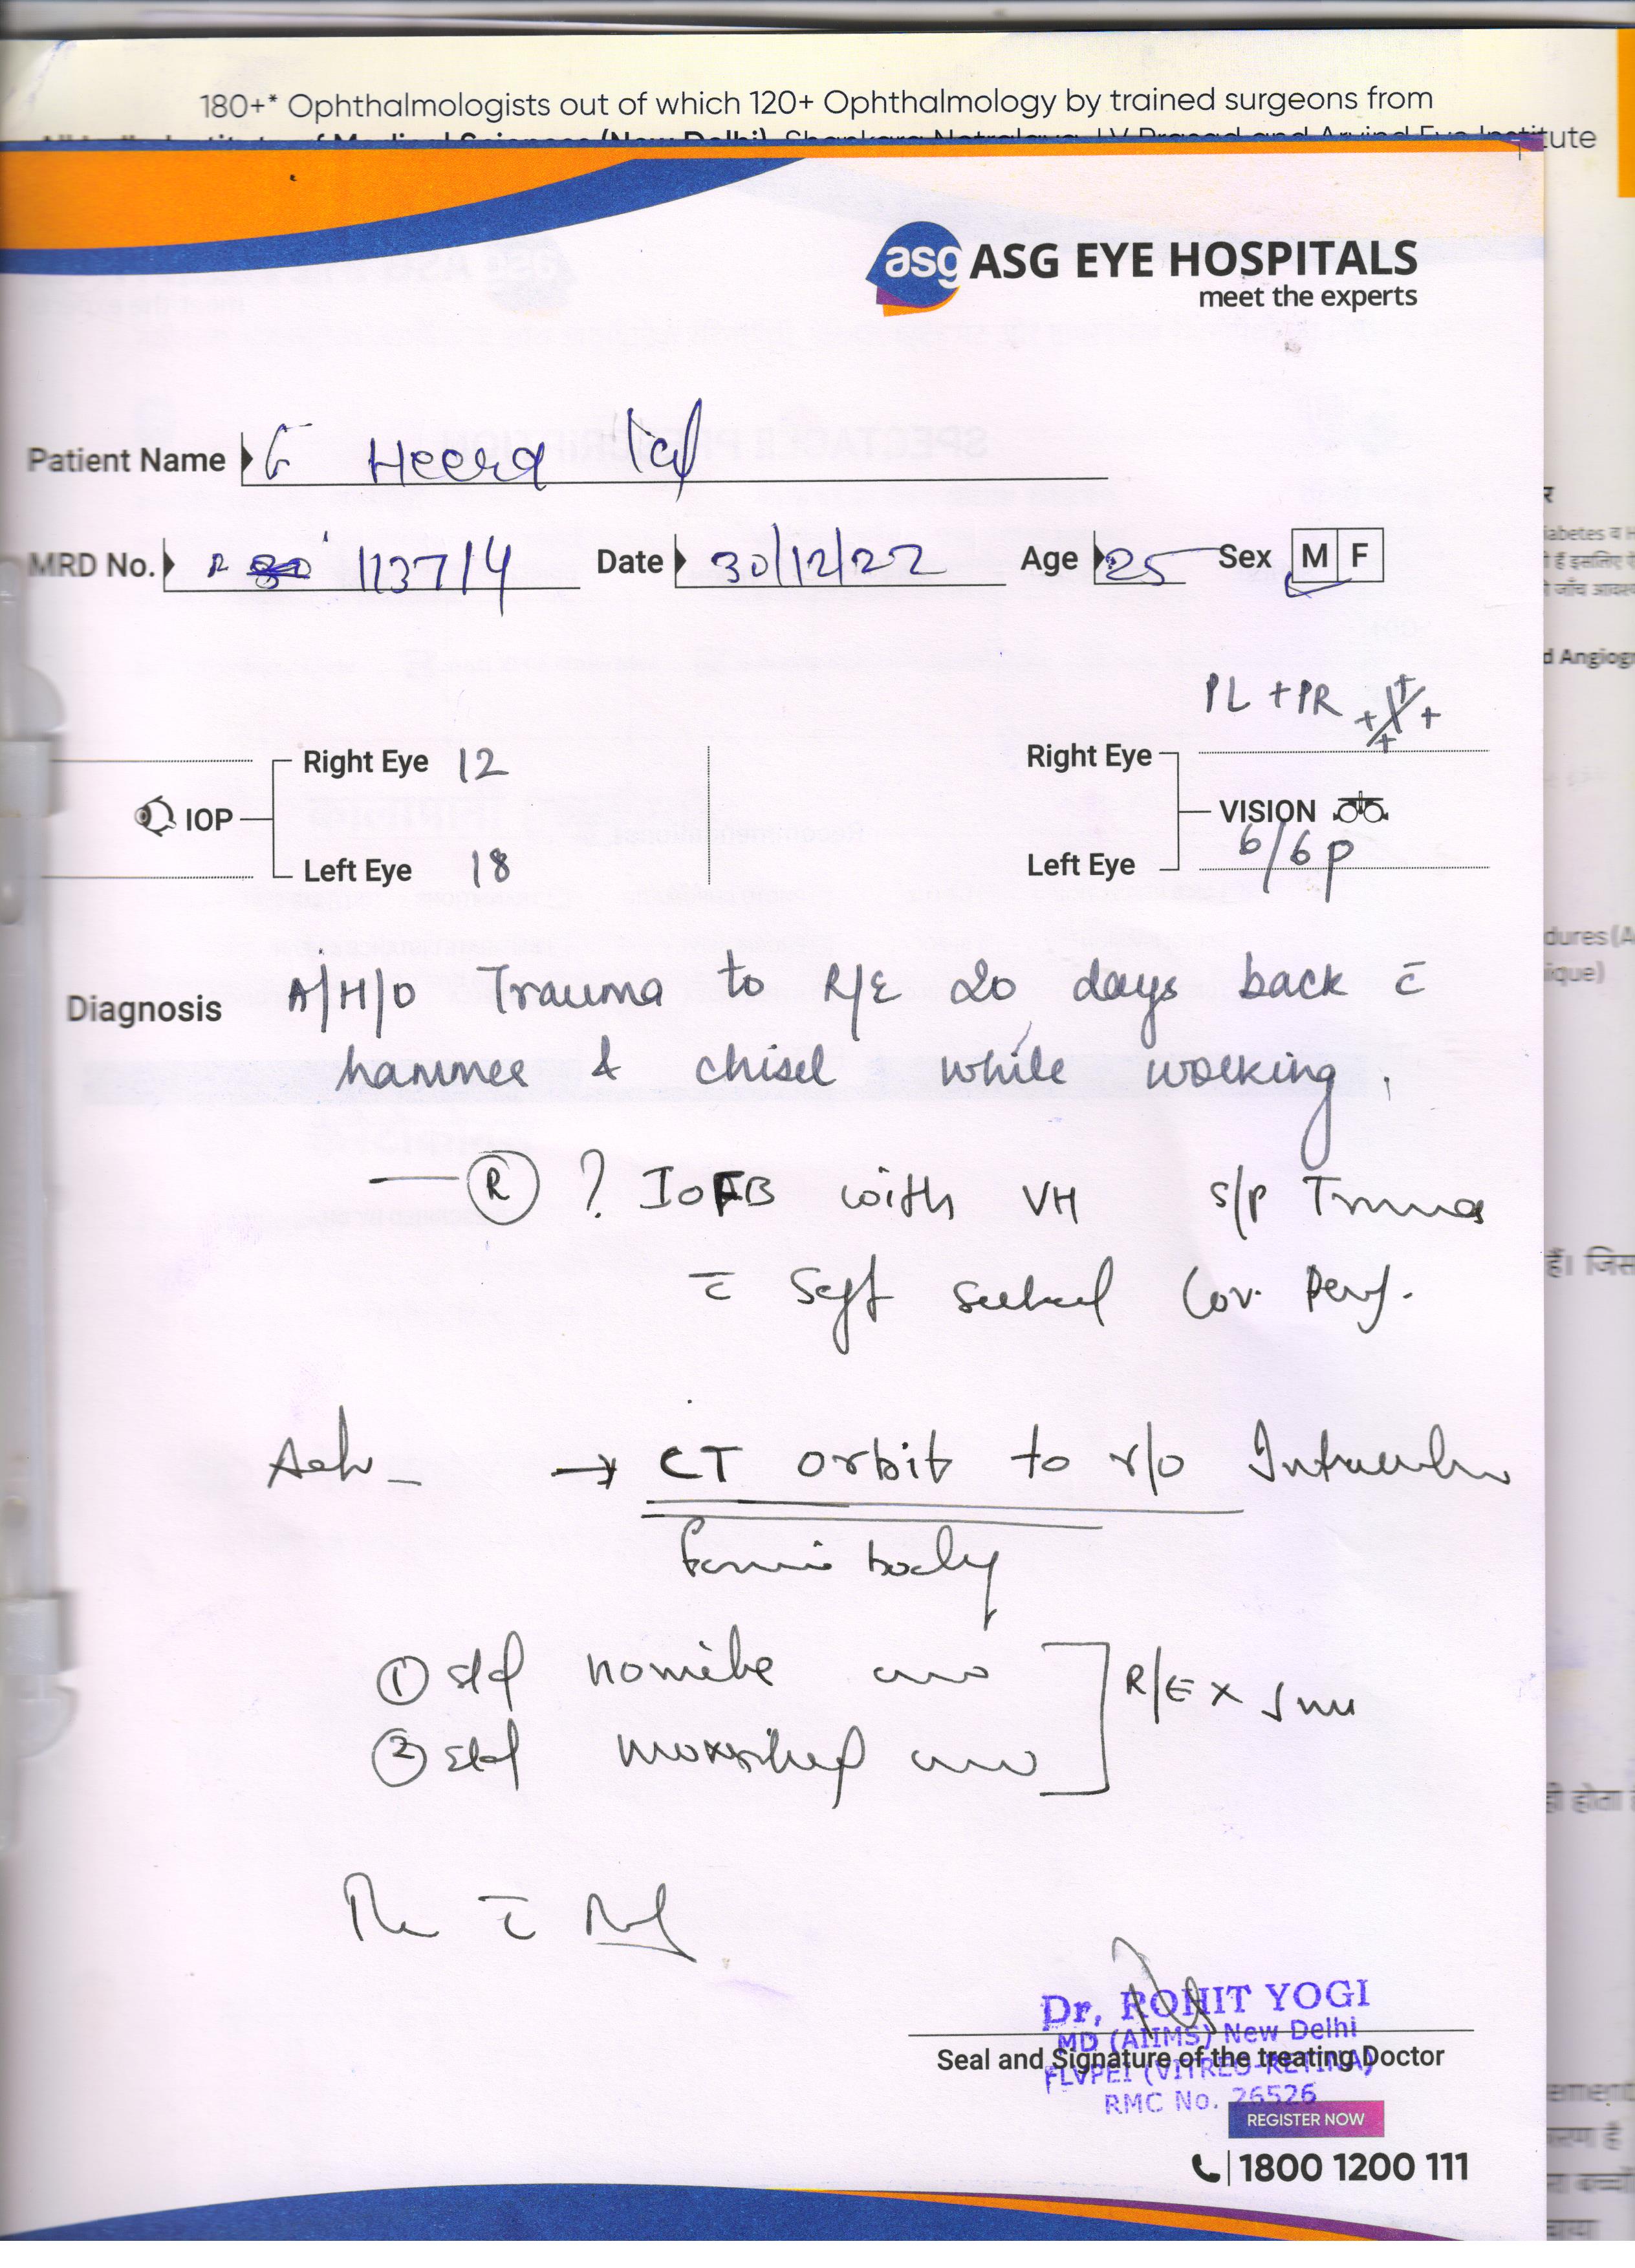 180+* Ophthalmologists out of which 120+ Ophthalmology by trained surgeons from
Institute of Medical Sciences (New Delhi), Shankara Netralaya, LV Prasad and Arvind Eye Institute
asg ASG EYE HOSPITALS
meet the experts
Patient Name Heera lal
MRD No. 113714 Date 30/12/22 Age 25 Sex M F
PL + PR + + + +
Right Eye 12 Right Eye
IOP VISION
Left Eye 18 Left Eye 6/6p
Diagnosis A/H/O Trauma to R/E 20 days back c̄
hammer & chisel while working.
R ? IOFB with VH s/p Trauma
c̄ Self sealed Cor. Perf.
Adv - → CT orbit to r/o Intraocular
foreign body
① R/E X
②
c̄
Dr, ROHIT YOGI
MD (AIIMS) New Delhi
Seal and Signature of the treating Doctor
FLVPEI (VITREO-RETINA)
RMC No. 26526
REGISTER NOW
1800 1200 111
र
d Angiogr
dures (A
ique)
हैं। जिस
ही होता